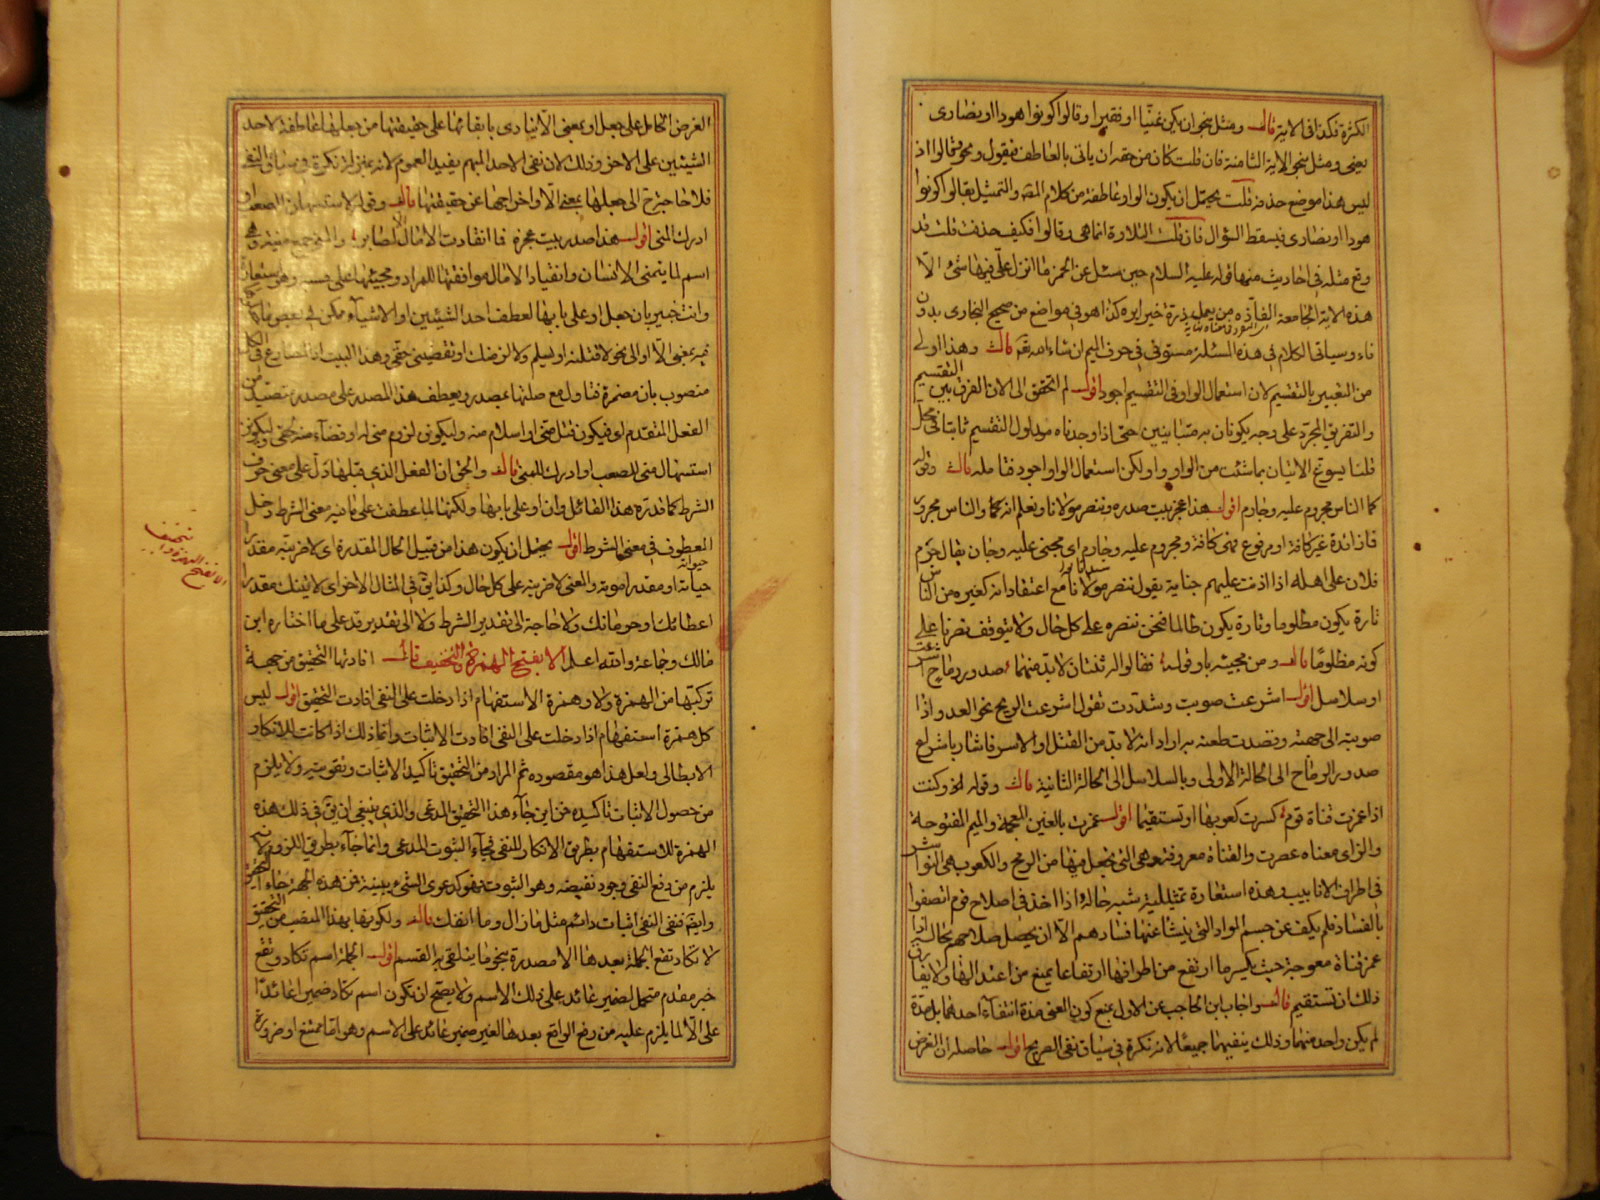 الكثرة فكذا في الآية قال ومثل بنحو ان يكن غنيا او فقيرا وقالوا كونوا هودا او نصارى
يعني ومثل بنحو الآية الثامنة فان قلت كان من حقه ان ياتي بالعاطف فيقول ونحو وقالوا اذ
ليس هذا موضع حذفه قلت يحتمل ان يكون الواو عاطفة من كلام المص والتمثيل بقالوا كونوا
هودا او نصارى فيسقط السؤال فان قلت التلاوة انما هي وقالوا فكيف حذفت قلت قد
وقع مثله في احاديث منها قوله عليه السلام حين سئل عن الحمر ما انزل علي فيها شئ الا
هذه الآية الجامعة الفاذة من يعمل مثقال ذرة خيرا يره كذا هو في مواضع من صحيح البخاري بدون
فاء وسياتي الكلام في هذه المسئلة مستوفى في حرف الميم ان شاء الله تعم قال وهذا اولى
من التعبير بالتقسيم لان استعمال الواو في التقسيم اجود اقول لم اتحقق الى الان الفرق بين التقسيم
والتفريق المجرد على وجه يكونان به متباينين حتى اذا وجدناه مدلول التقسيم ثابتا في محل
قلنا يسوغ الاتيان بما شئت من الواو واو ولكن استعمال الواو اجود فتامله قال وقوله
كما الناس مجروم عليه وجارم اقول هذا عجز بيت صدره وننصر مولانا ونعلم انه كما الناس مجروم
فما زائدة غير كافة اومرفوع فهي كافة ومجروم عليه وجارم اي مجني عليه وجان يقال جرم
فلان على اهله اذا اذنب عليهم جناية يقول ننصر مولانا مع اعتقادانه كغيره من الناس
تارة يكون مظلوما وتارة يكون ظالما فنحن ننصره على كل حال ولا يتوقف نصرنا على
كونه مظلوما قال ومن مجيئه باو قوله فقالوا لنا ثنتان لا بد منهما صدور رماح اشرعت
او سلاسل اقول اشرعت صوبت وسددت تقول اشرعت الرمح نحو العدو اذا
صوبته الى جهته وقصدت طعنه به اراد انه لا بد من القتل او الاسر فاشار باشراع
صدور الرماح الى الحالة الاولى وبالسلاسل الى الحالة الثانية قال وقوله وكنت
اذا غمزت قناة قوم كسرت كعوبها او تستقيما اقول غمزت بالغين المعجمة والميم المفتوحة
والزاي معناه عصرت والقناة معروفة وهي التي يجعل فيها من الرمح والكعوب هي النواشز
في اطراف الانابيب وهذه استعارة تمثيلية شبه حاله اذا اخذ في اصلاح قوم اتصفوا
بالفساد فلم يكف عن حسم المواد التي ينشأ عنها فسادهم الا ان يحصل صلاحهم بحاله اذا
غمز قناة معوجة حيث يكسر ما ارتفع من اطرافها ارتفاعا يمنع من اعتدالها ولا يفارق
ذلك ان تستقيم قال واجاب ابن الحاجب عن الاول بمنع كون المعنى مدة انتفاء احدهما بل مدة
لم يكن واحد منهما وذلك بنفيهما جميعا لانه نكرة في سياق نفي الصريح اقول حاصله ان الغرض
الغرض الحامل على جعل او بمعنى الا يتادى بابقائها على حقيقتها من جعلها عاطفة لاحد
الشيئين على الآخر وذلك لان نفي الاحد المبهم يفيد العموم لانه بمنزلة نكرة في سياق النفي
فلا حاجة الى جعلها بمعنى الا واخراجها عن حقيقتها قال وقوله لاستسهلن الصعب او
ادرك المنى اقول هذا صدر بيت عجزه فما انقادت الآمال الا لصابر والمنى جمع منية وهي
اسم لما يتمنى الانسان وانقياد الآمال موافقتها للمراد ومجيئها على
وانت خبير بان جعل او على بابها لعطف احد الشيئين او الاشياء ممكن في بعض ما
فيه بمعنى الا او الى نحو لاقتلنه او يسلم ولالزمنك او تقضيني حقي وهذا البيت اذ المضارع في الكل
منصوب بان مضمرة فتاول مع صلتها بمصدر ويعطف هذا المصدر على مصدر متصيد من
الفعل المتقدم او فيكون قتل مني او اسلام منه وليكون لزوم مني له او قضاء منه لحقي وليكونن
استسهال مني للصعب او ادراك للمنى قال والحق ان الفعل الذي قبلها دل على معنى حرف
الشرط كما قدره هذا القائل وان او على بابها ولكنها لما عطفت على ما فيه معنى الشرط دخل
المعطوف في معنى الشرط اقول يحتمل ان يكون هذا من قبيل الحال المقدرة اي لاضربنه مقدرا
حياته او مقدرا موته والمعنى لاضربنه على كل حال وكذا يق في المثال الآخر اي لآتينك مقدرا
اعطائك او حرمانك ولا حاجة الى تقدير الشرط ولا الى تقدير قد على ما اختاره ابن
مالك وجماعة والله اعلم الا بفتح الهمزة والتخفيف قال افادتها التحقيق من جهة
تركيبها من الهمزة ولا وهمزة الاستفهام اذا دخلت على النفي افادت التحقيق اقول ليس
كل همزة استفهام اذا دخلت على النفي افادت الاثبات وانما ذلك اذا كانت للانكار
الابطالي ولعل هذا هو مقصوده ثم المراد من التحقيق تاكيد الاثبات وتقويته ولا يلزم
من حصول الاثبات تاكيده فمن اين جاء هذا التحقيق المدعى والذي ينبغي ان يق في ذلك هذه
الهمزة للاستفهام بطريق الانكار للنفي فيجاء الثبوت المدعى وانما جاء بطريق اللزوم لانه
يلزم من رفع النفي وجود نقيضه وهو الثبوت فهو كدعوى الشيء ببينة فمن هذه الجهة جاء التحقيق
وايضم فنفي النفي اثبات دائم مثل ما زال وما انفك قال ولكونها بهذا المنصب من التحقيق
لا تكاد تقع الجملة بعدها الا مصدرة بنحو ما يتلقى به القسم اقول الجملة اسم تكاد وتقع
خبر مقدم متحمل لضمير عائد على ذلك الاسم ولا يصح ان تكون اسم تكاد ضميرا عائدا
على الا لما يلزم عليه من رفع الواقع بعدها لغير ضمير عائد على الاسم وهو اما ممتنع او ضرورة
الا بفتح الهمزة والتخفيف